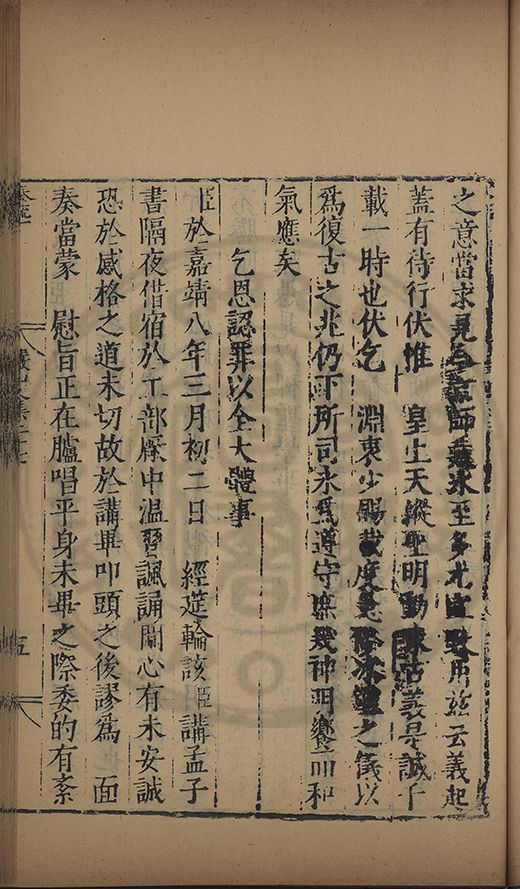 之意當求見今京師藏冰至多尤宜取用茲云義起
蓋有待行伏惟　皇上天縱聖明動求古義是誠千
載一時也伏乞　淵衷少賜裁度
冰鑑之儀以
爲復古之兆仍下所司永爲遵守庶幾神明饗而和
氣應矣
乞恩認罪以全大體事
臣於嘉靖八年三月初二日　經筵輪該臣講孟子
書隔夜借宿於工部廨中溫習諷誦關心有未安誠
恐於感格之道未切故於講畢叩頭之後謬爲　面
奏當蒙　慰旨正在臚唱平身未畢之際委的有紊
五